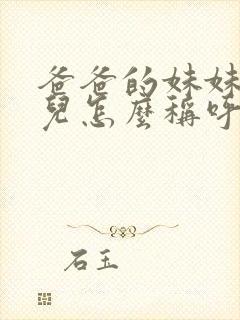 爸爸的妹妹
兒怎麼稱呼
石玉